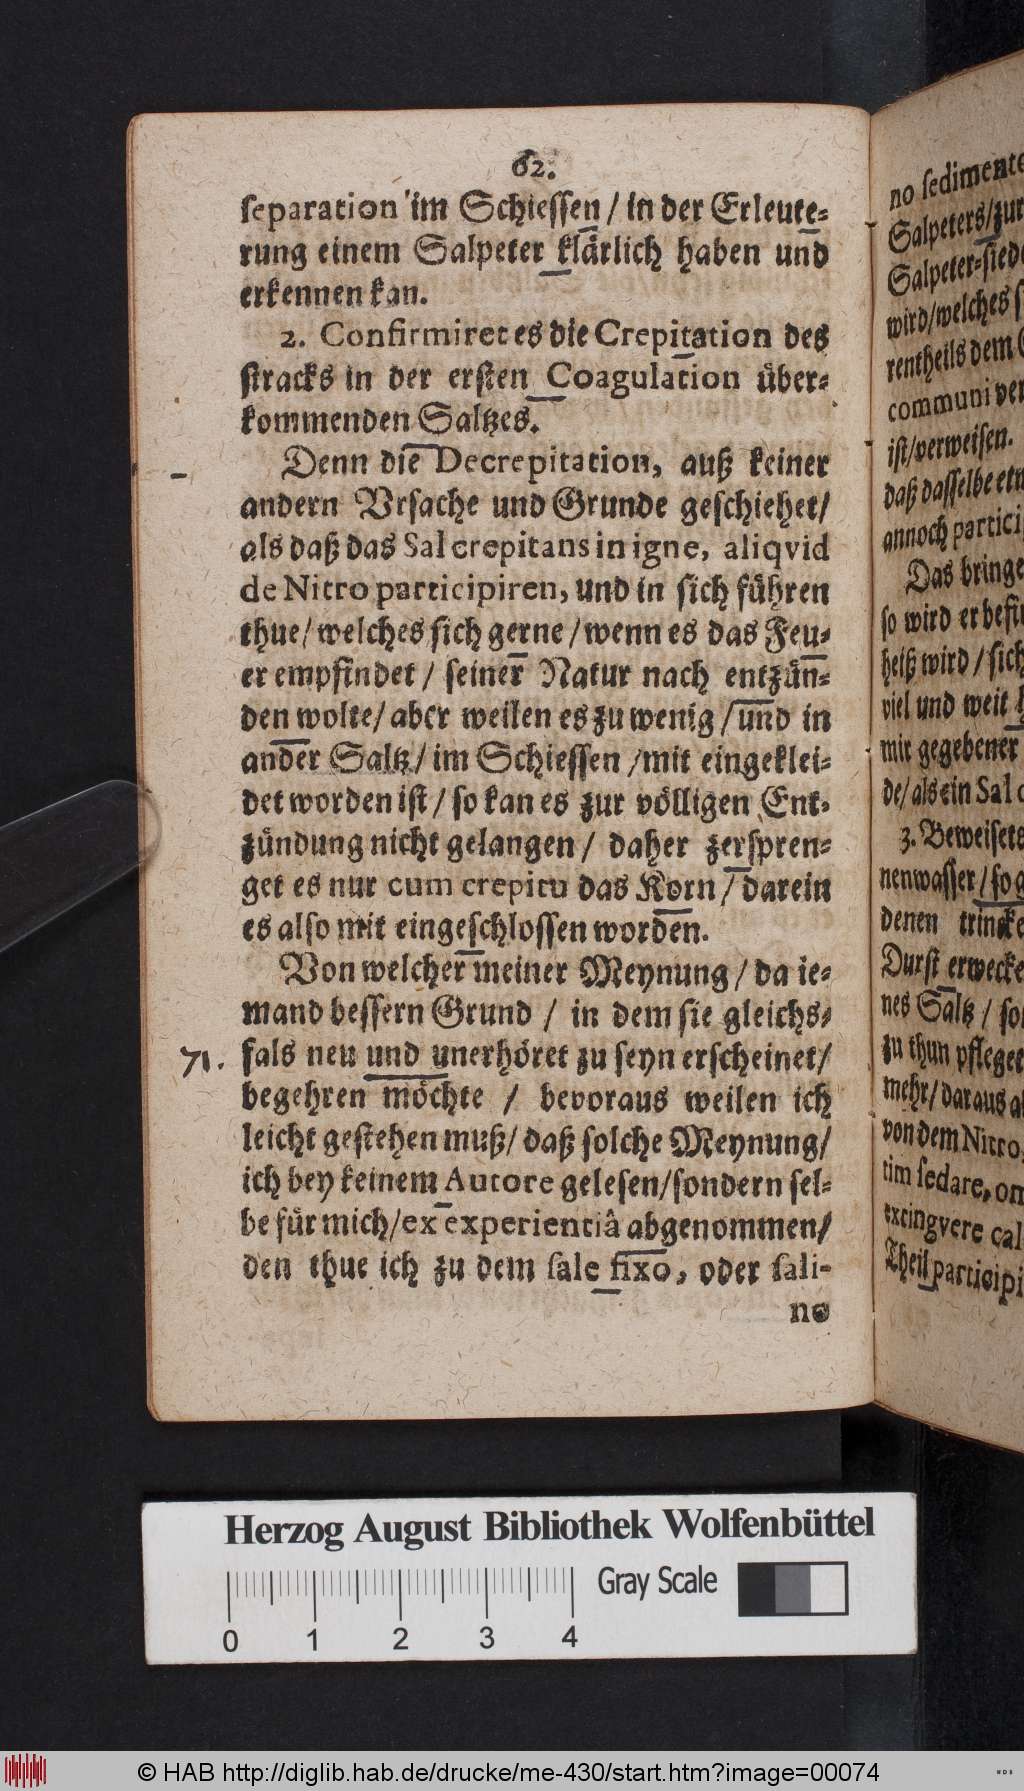 62.
separation im Schiessen / in der Erleute-
rung einem Salpeter klärlich haben und
erkennen kan.
2. Confirmiret es die Crepitation des
stracks in der ersten Coagulation über-
kommenden Saltzes.
Denn die Decrepitation, auß keiner
andern Vrsache und Grunde geschiehet/
als daß das Sal crepitans in igne, aliqvid
de Nitro participiren, und in sich führen
thue/ welches sich gerne / wenn es das Feu-
er empfindet / seiner Natur nach entzün-
den wolte/ aber weilen es zu wenig / und in
ander Saltz / im Schiessen / mit eingeklei-
det worden ist / so kan es zur völligen Ent-
zündung nicht gelangen / daher zerspren-
get es nur cum crepitu das Korn / darein
es also mit eingeschlossen worden.
Von welcher meiner Meynung / da ie-
mand bessern Grund / in dem sie gleichs-
71. fals neu und unerhöret zu seyn erscheinet/
begehren möchte / bevoraus weilen ich
leicht gestehen muß/ daß solche Meynung/
ich bey keinem Autore gelesen/sondern sel-
be für mich/ex experientiâ abgenommen/
den thue ich zu dem sale fixo, oder sali-
no
no sedimente
Salpeters/zur
Salpeter-siede
wird/welches
rentheils dem
communi ver
ist/verweisen.
daß dasselbe etw
annoch partici
Das bringe
so wird er befi
heiß wird / sich
viel und weit
mit gegebener
de/als ein Sal
3. Beweiset
nenwasser / so
denen trincke
Durst erwecke
nes Saltz / so
zu thun pfleget
mehr/ daraus
von dem Nitro,
tim sedare, om
extingvere cal
Theil participi
Herzog August Bibliothek Wolfenbüttel
0 1 2 3 4
Gray Scale
© HAB http://diglib.hab.de/drucke/me-430/start.htm?image=00074